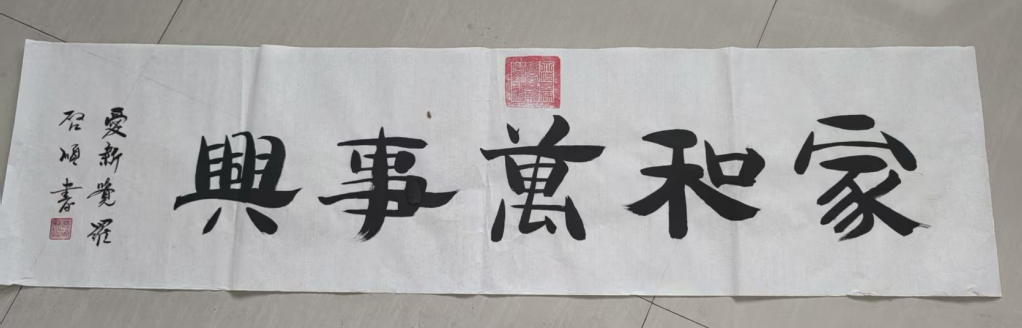 家和萬事興
愛新覺羅
啟順書